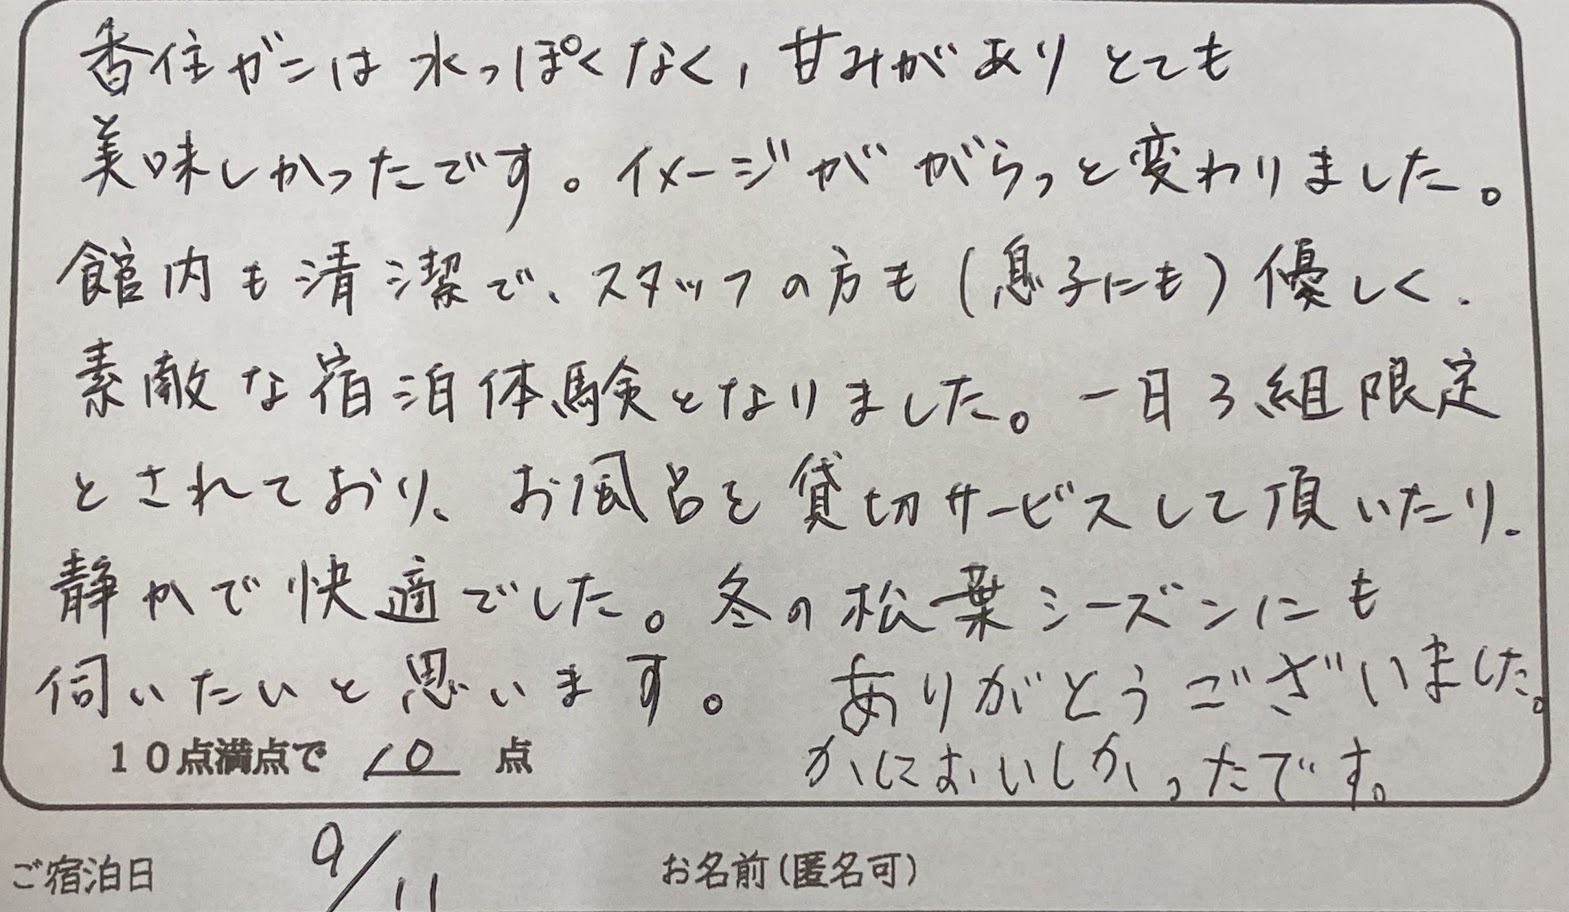 香住ガニは水っぽくなく、甘みがありとても
美味しかったです。イメージががらっと変わりました。
館内も清潔で、スタッフの方も(息子にも)優しく、
素敵な宿泊体験となりました。一日3組限定
とされており、お風呂を貸切サービスして頂いたり、
静かで快適でした。冬の松葉シーズンにも
伺いたいと思います。 ありがとうございました。
かにおいしかったです。
10点満点で 10 点
ご宿泊日 9/11 お名前(匿名可)